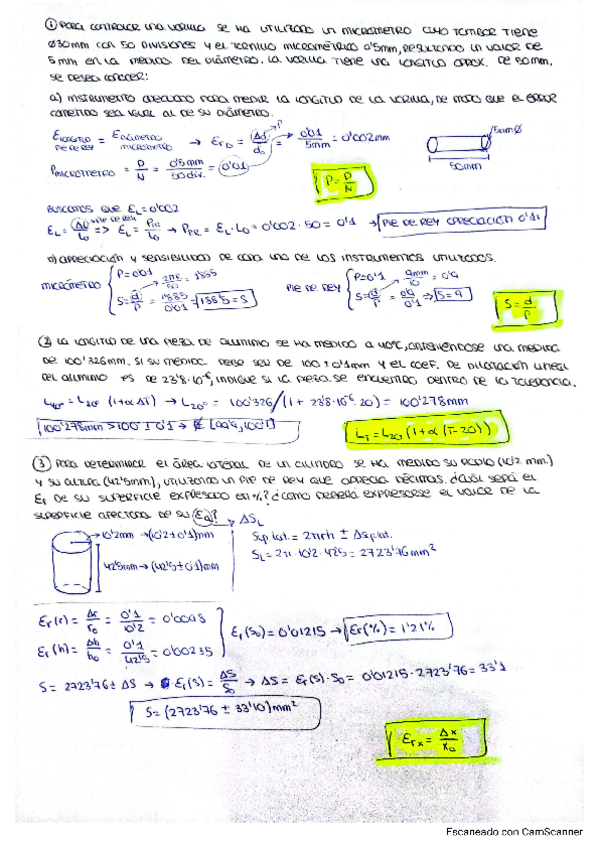 ① PARA CONTROLAR UNA VARILLA SE HA UTILIZADO UN MICRÓMETRO CUYO TAMBOR TIENE
Ø30mm CON 50 DIVISIONES Y EL TORNILLO MICROMÉTRICO 0'5mm, RESULTANDO UN VALOR DE
5mm EN LA MEDIDA DEL DIÁMETRO. LA VARILLA TIENE UNA LONGITUD APROX. DE 50mm,
SE DESEA CONOCER:
a) INSTRUMENTO ADECUADO PARA MEDIR LA LONGITUD DE LA VARILLA, DE MODO QUE EL ERROR
COMETIDO SEA IGUAL AL DE SU DIÁMETRO.
E LONGITUD PIE DE REY = E DIÁMETRO MICRÓMETRO → Er D = Δd/d₀ = 0'01/5mm = 0'002mm
P
5mmØ
50mm
P MICRÓMETRO = P/N = 0'5mm/50 div. = 0'01
P = P/N
BUSCAMOS QUE EL = 0'002
EL = ΔL/L₀ => EL = PPR/L₀ → PPR = EL · L₀ = 0'002 · 50 = 0'1 → PIE DE REY APRECIACIÓN 0'1
b) APRECIACIÓN Y SENSIBILIDAD DE CADA UNO DE LOS INSTRUMENTOS UTILIZADOS.
MICRÓMETRO { P=0'01
S = d/P = 1'885/0'01 = 188'5 = S
2πR/50 = 1'885
PIE DE REY { P=0'1
S = d/P = 0'9/0'1 → S = 9
9mm/10 = 0'9
S = d/P
② LA LONGITUD DE UNA PIEZA DE ALUMINIO SE HA MEDIDO A 40ºC, OBTENIÉNDOSE UNA MEDIDA
DE 100'326mm. SI SU MEDIDA DEBE SER DE 100 ± 0'1mm Y EL COEF. DE DILATACIÓN LINEAL
DEL ALUMINIO ES DE 23'8·10⁻⁶, INDIQUE SI LA PIEZA SE ENCUENTRA DENTRO DE LA TOLERANCIA.
L40º = L20º (1+α ΔT) → L20º = 100'326/(1 + 23'8·10⁻⁶ 20) = 100'278mm
100'278mm > 100 ± 0'1 → ∉ [99'9, 100'1]
LT = L20 (1+α (T-20))
③ PARA DETERMINAR EL ÁREA LATERAL DE UN CILINDRO SE HA MEDIDO SU RADIO (10'2 mm.)
Y SU ALTURA (42'5mm), UTILIZANDO UN PIE DE REY QUE APRECIA DÉCIMAS. ¿CUÁL SERÁ EL
Er DE SU SUPERFICIE EXPRESADO EN %? ¿CÓMO DEBERÁ EXPRESARSE EL VALOR DE LA
SUPERFICIE AFECTADA DE SU Ea?
→ ΔSL
10'2mm → (10'2 ± 0'1)mm
42'5mm → (42'5 ± 0'1)mm
Sup lat. = 2πrh ± Δsup.lat.
SL = 2π · 10'2 · 42'5 = 2723'76 mm²
Er(r) = Δr/r₀ = 0'1/10'2 = 0'0098
Er(h) = Δh/h₀ = 0'1/42'5 = 0'00235
Er(S₀) = 0'01215 → Er(%) = 1'21%
S = 2723'76 ± ΔS → Er(S) = ΔS/S₀ → ΔS = Er(S) · S₀ = 0'01215 · 2723'76 = 33'1
S = (2723'76 ± 33'10) mm²
Er x = Δx/x₀
Escaneado con CamScanner